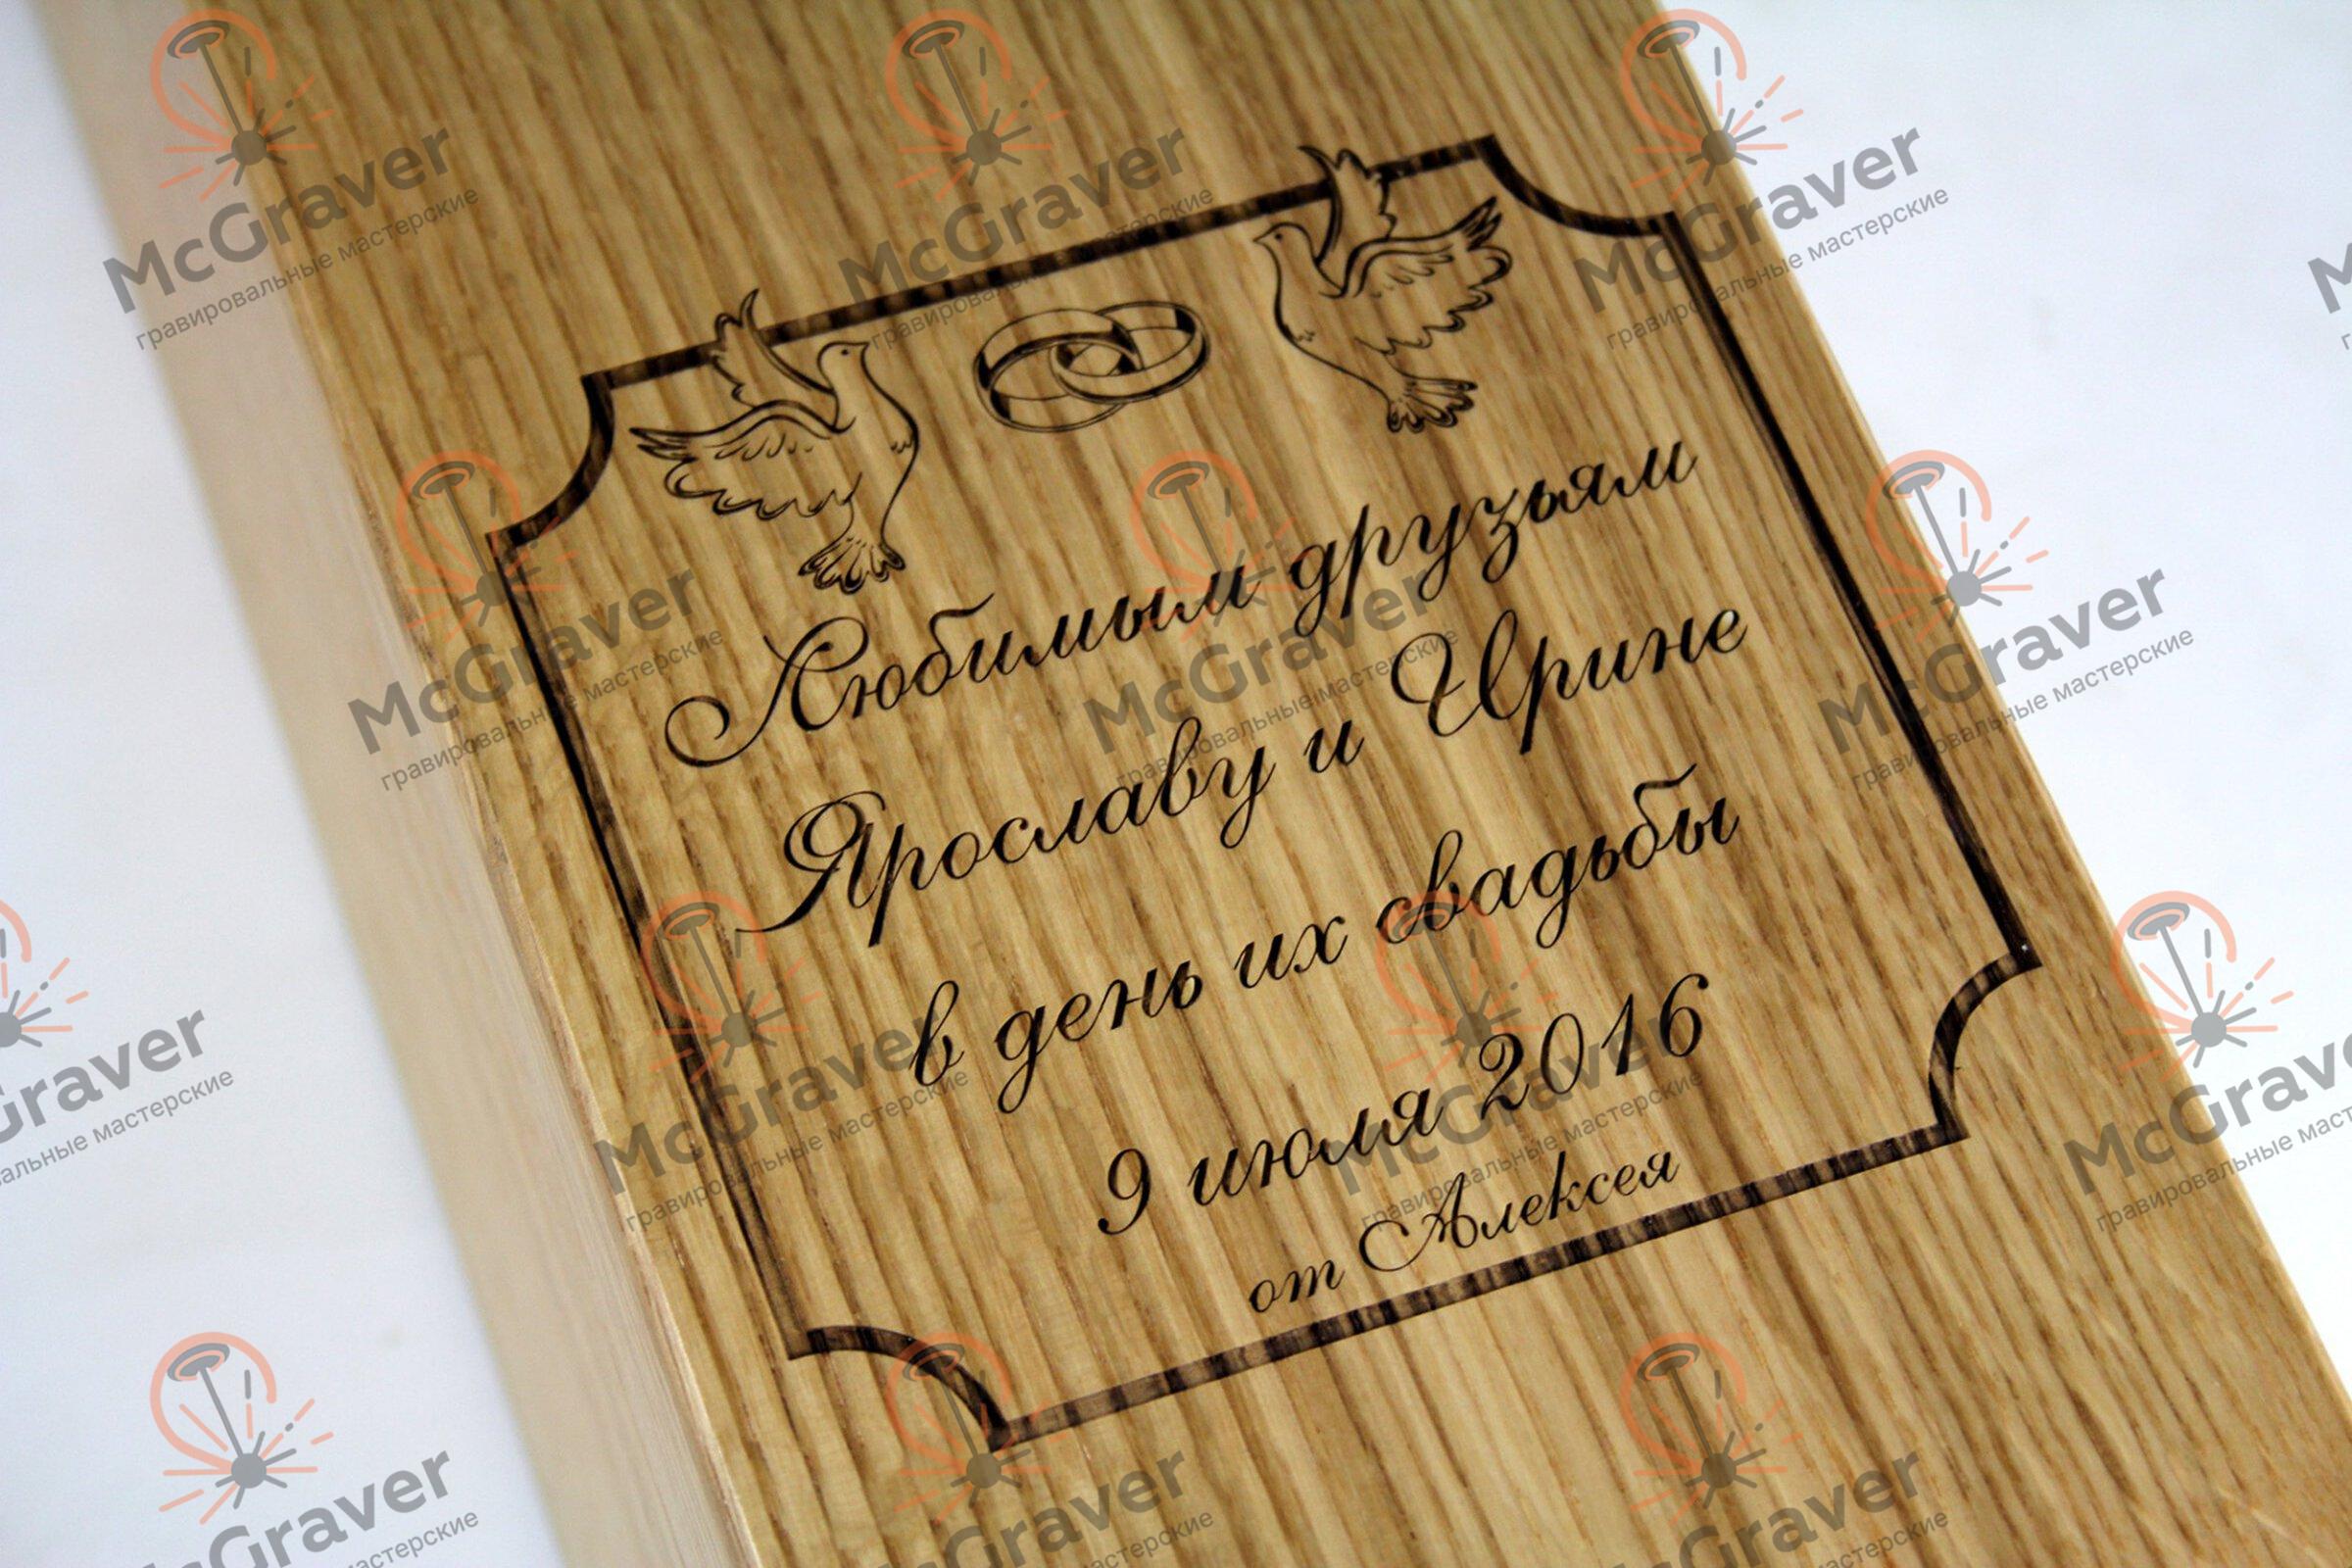 Любимым друзьям
Ярославу и Ирине
в день их свадьбы
9 июля 2016
от Алексея
McGraver
гравировальные мастерские